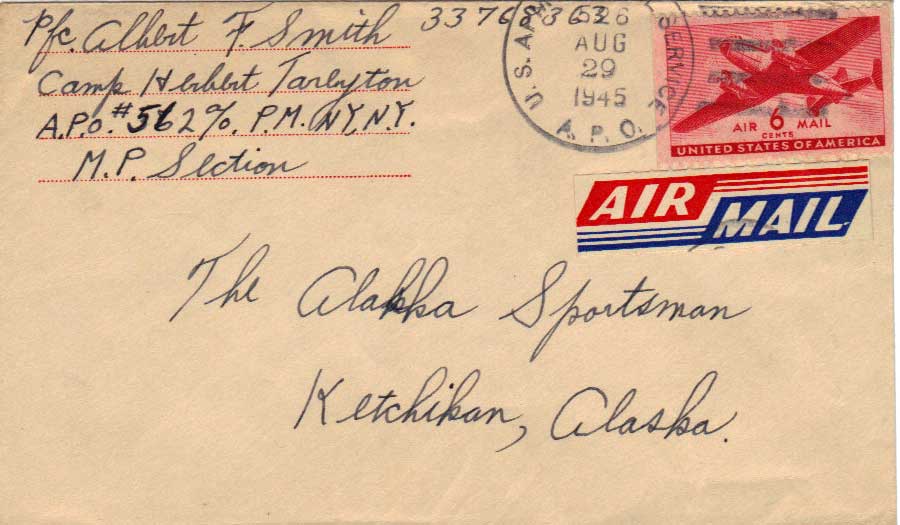 Pfc. Albert F. Smith 33768363
Camp Herbert Tareyton
A.P.O. #562 % P.M. N.Y., N.Y.
M.P. Section
U.S. A SERVICE
526
AUG
29
1945
A. P. O.
AIR 6 MAIL
CENTS
UNITED STATES OF AMERICA
AIR MAIL
The Alakka Sportsman
Ketchikan, Alaska.